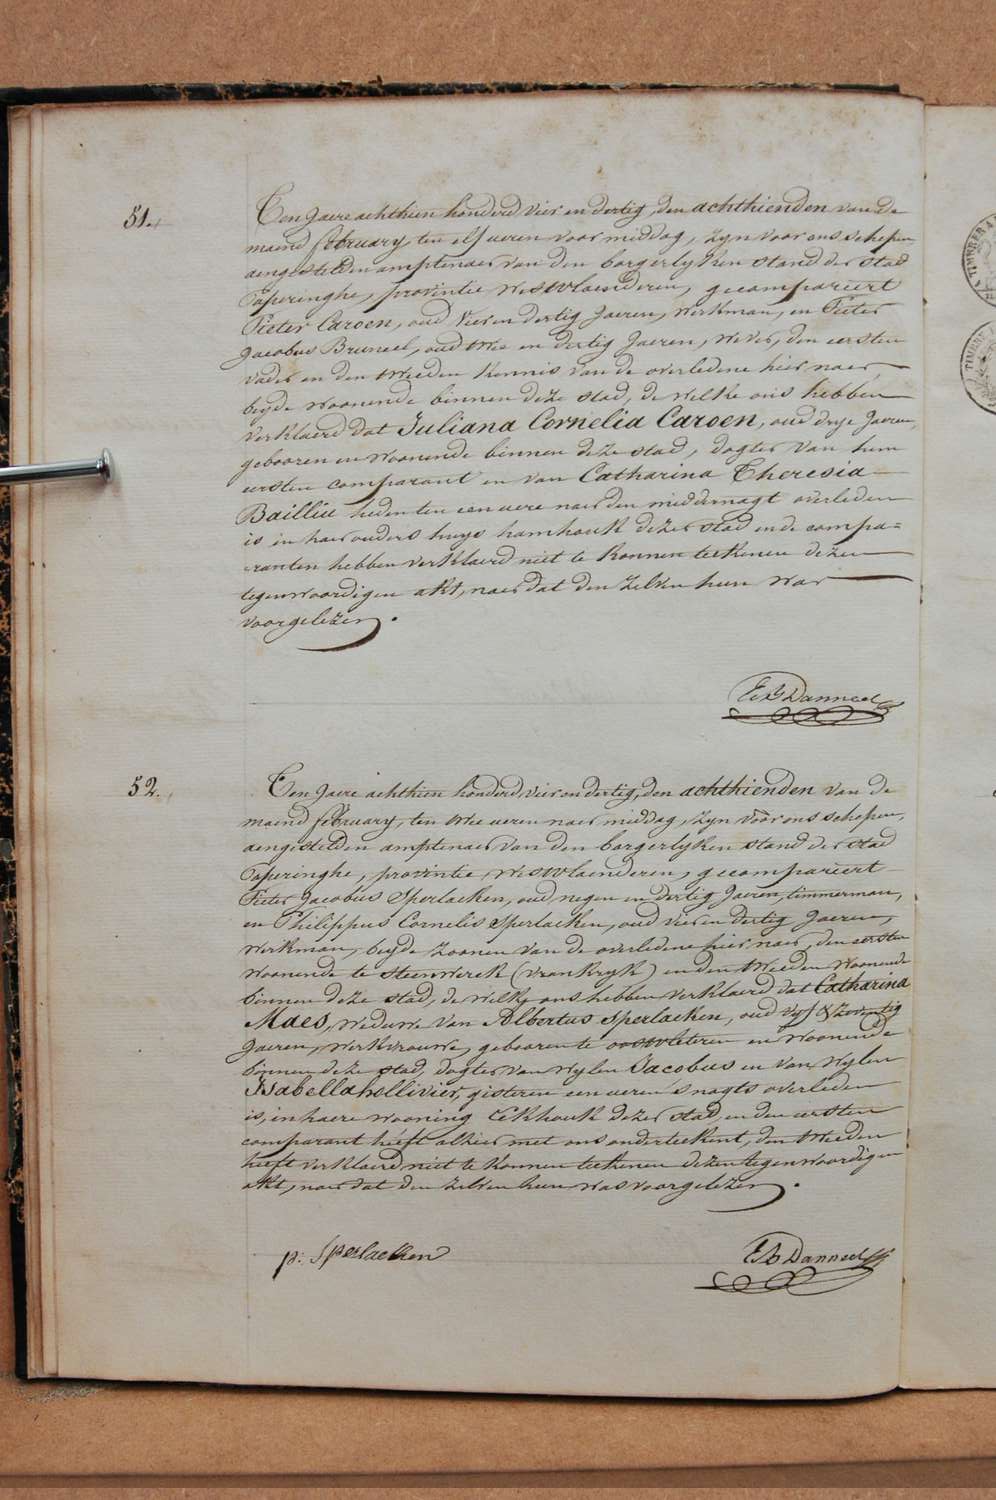 51.
Ten Jaere achthien honderd vier en dertig, den achthienden van de
maend february, ten elf ueren voor middag, zyn voor ons schepen,
aengestelden amptenaer van den borgerlyken stand der stad
Poperinghe, provintie westvlaenderen, gecompariert
Pieter Caroen, oud vier en dertig Jaeren, werkman, en Pieter
Jacobus Bruneel, oud twee en dertig Jaeren, wever, den eersten
vader en den tweeden kennis van de overledene hier naer,
beyde woonende binnen deze stad, de welke ons hebben
verklaerd dat Juliana Cornelia Caroen, oud drye Jaeren,
gebooren en woonende binnen deze stad, dogter van hem
eersten comparant en van Catharina Theresia
Bailliu heden ten een uere naer den middernagt overleden
is in haer ouders huys hamhouk dezer stad en de compa=
ranten hebben verklaerd niet te konnen teekenen dezen
tegenwoordigen akt, naer dat den zelven hun was
voorgelezen.
Danneel
52.
Ten Jaere achthien honderd, vier en dertig, den achthienden van de
maend february, ten twee ueren naer middag, zyn voor ons schepen,
aengestelden amptenaer van den borgerlyken stand der stad
Poperinghe, provintie westvlaenderen, gecompariert
Pieter Jacobus Sperlaeken, oud negen en dertig Jaeren, timmerman,
en Philippus Cornelis Sperlaeken, oud vier en dertig Jaeren,
werkman, beyde zoonen van de overledene hier naer, den eersten
woonende te steenwerck (vrankryk) en den tweeden woonende
binnen deze stad, de welke ons hebben verklaerd dat Catharina
Maes, weduwe van Albertus Sperlaeken, oud vyf & zeventig
Jaeren, werkvrouwe, gebooren te oostvleteren en woonende
binnen deze stad, dogter van wylen Jacobus en van wylen
Isabella hollivier, gisteren een ueren s'nagts overleden
is, in haere wooning Eekhouk dezer stad en den eersten
comparant heeft alhier met ons onderteekent, den tweeden
heeft verklaerd niet te konnen teekenen dezen tegenwoordigen
akt, naer dat den zelven hun was voorgelezen.
p: Sperlaeken
Danneel